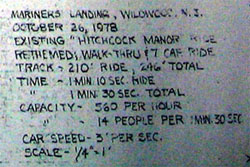 MARINERS LANDING, WILDWOOD, N.J.
OCTOBER 26, 1978
EXISTING "HITCHCOCK MANOR" RIDE
RETHEMED, WALK-THRU & 7 CAR RIDE
TRACK - 210' RIDE, 246' TOTAL
TIME - 1 MIN 10 SEC. RIDE
" 1 MIN. 30 SEC. TOTAL
CAPACITY - 560 PER HOUR
" - 14 PEOPLE PER 1 MIN. 30 SEC
CAR SPEED - 3' PER SEC.
SCALE - 1/4" = 1'